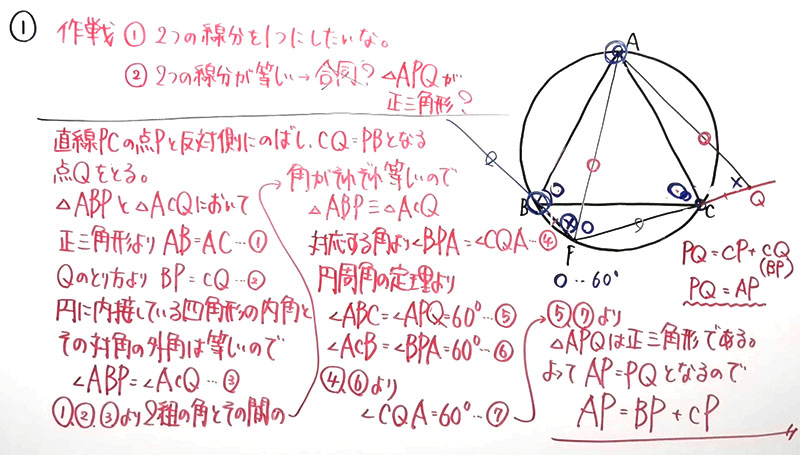 ①
作戦 ① 2つの線分を1つにしたいな。
② 2つの線分が等しい→合同? △APQが
正三角形?
直線PCの点Pと反対側にのばし、CQ=PBとなる
点Qをとる。
△ABPと△ACQにおいて
正三角形より AB=AC…①
Qのとり方より BP=CQ…②
円に内接している四角形の内角と
その対角の外角は等しいので
∠ABP=∠ACQ…③
①,②,③より2組の角とその間の
角がそれぞれ等しいので
△ABP≡△ACQ
対応する角より∠BPA=∠CQA…④
円周角の定理より
∠ABC=∠APQ=60°…⑤
∠ACB=∠BPA=60°…⑥
④,⑥より
∠CQA=60°…⑦
⑤,⑦より
△APQは正三角形である。
よって AP=PQとなるので
AP=BP+CP
A
B
C
P
Q
○…60°
PQ=CP+CQ
(BP)
PQ=AP